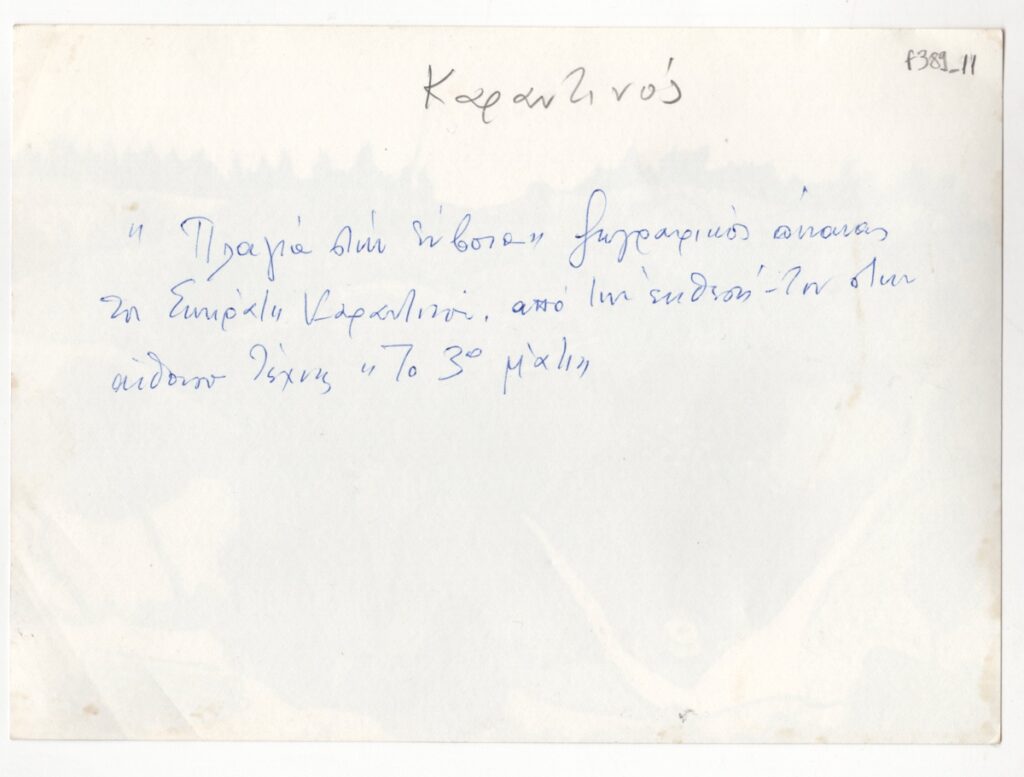 f389_11
Καραντινός
" Πλαγιά στην Εύβοια" ζωγραφικός πίνακας
του Σωκράτη Καραντινού, από την έκθεσή-του στην
αίθουσα Τέχνης "Το 3ο μάτι"